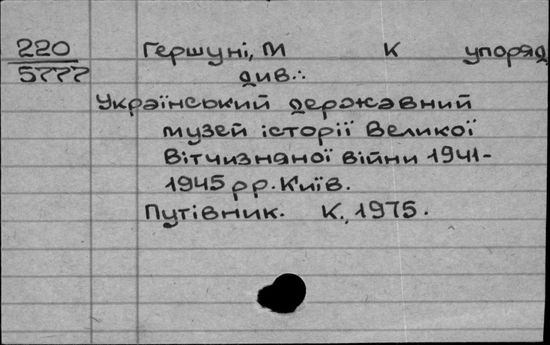 220 Гершуні, М К упоряд
5777 див.:
Український державний
музей історії Великої
Вітчизняної війни 1941-
1945 рр. Київ.
Путівник. К., 1975.